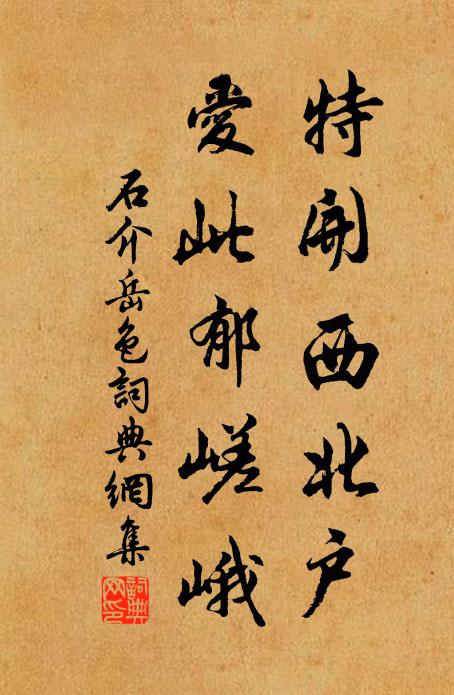 特開西北戶
愛此郁嵯峨
石介岳色詞典網集
詞典网印